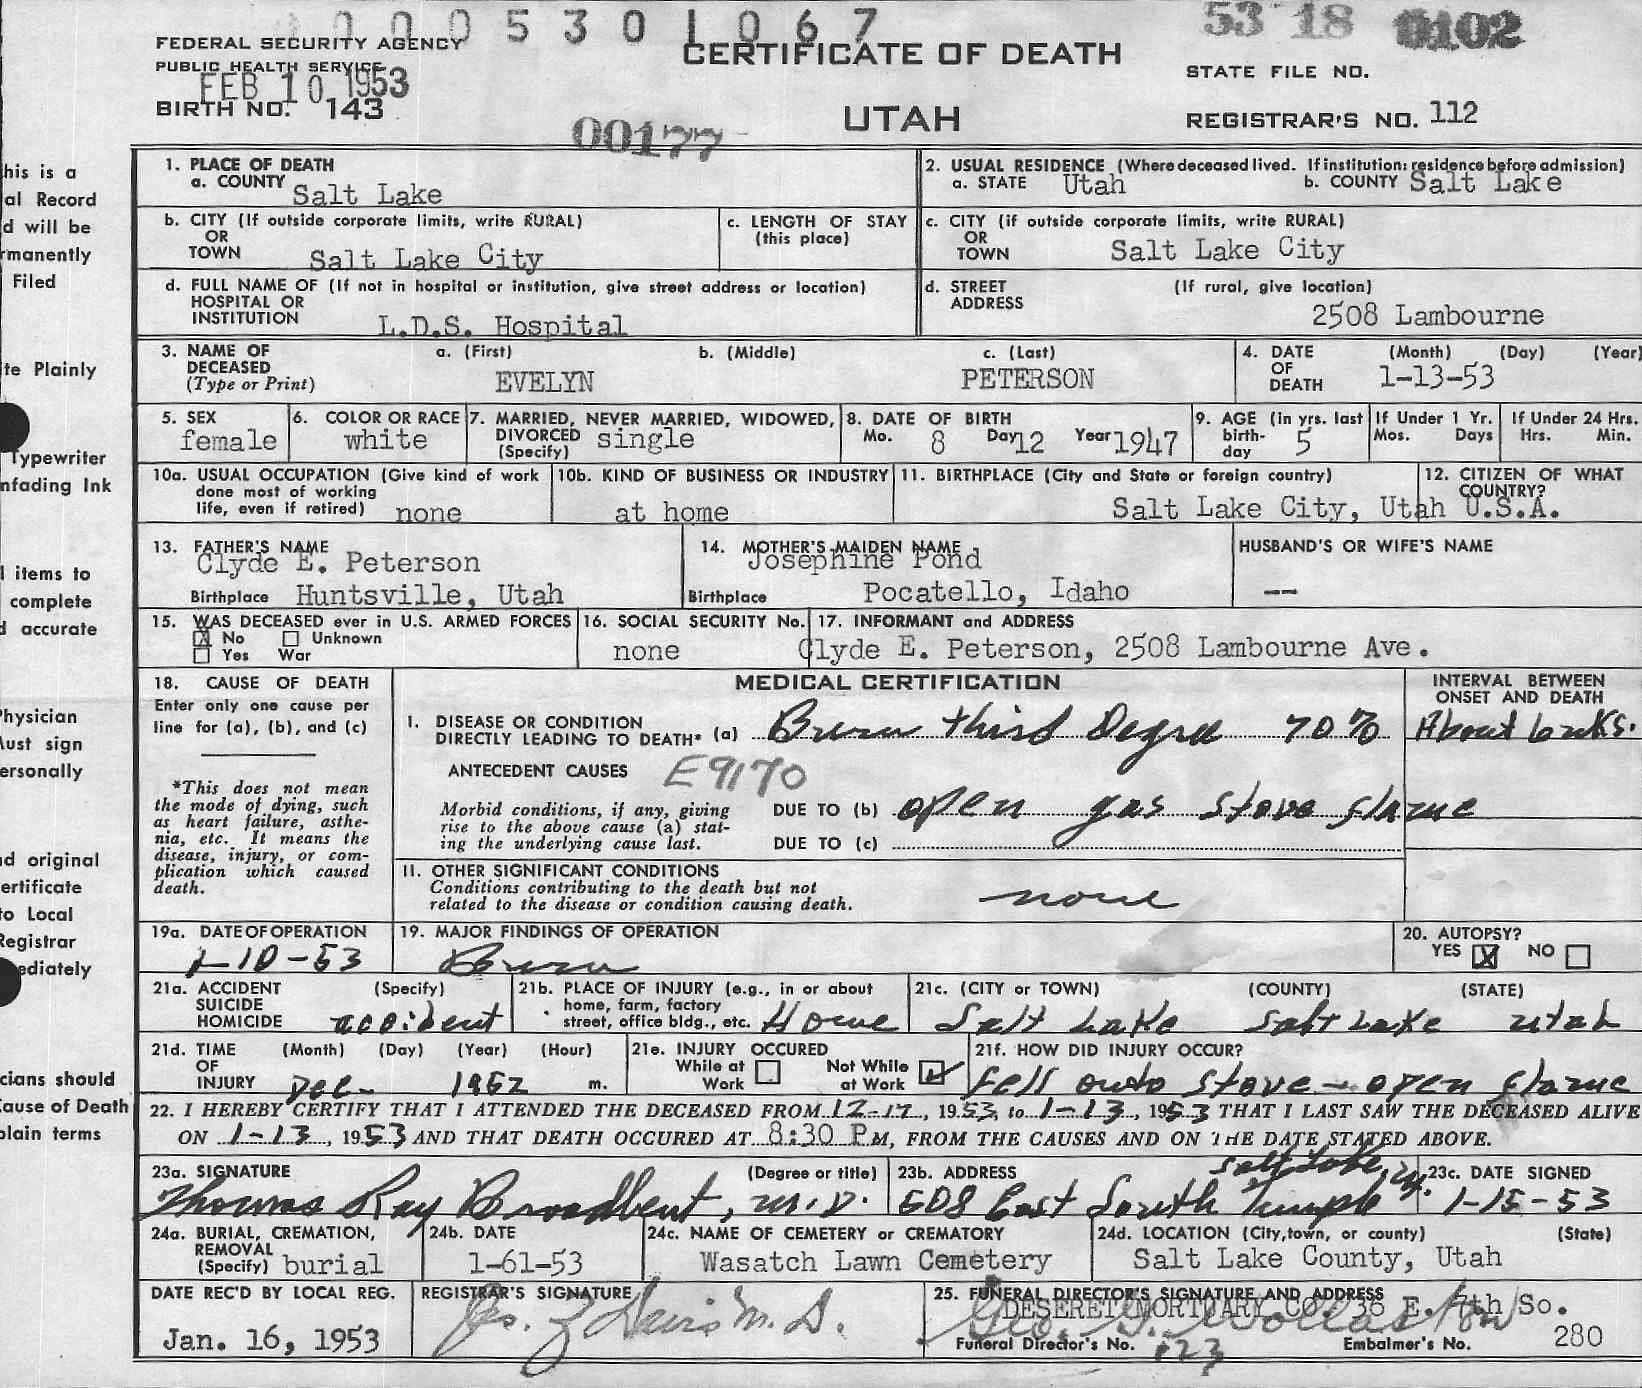 00005301067
53 18 0102
FEDERAL SECURITY AGENCY
PUBLIC HEALTH SERVICE
FEB 10 1953
BIRTH NO. 143
CERTIFICATE OF DEATH
UTAH
00177
STATE FILE NO.
REGISTRAR'S NO. 112
his is a
al Record
d will be
rmanently
Filed
te Plainly
Typewriter
nfading Ink
l items to
complete
d accurate
Physician
Must sign
ersonally
nd original
ertificate
to Local
Registrar
ediately
cians should
Cause of Death
plain terms
1. PLACE OF DEATH
a. COUNTY Salt Lake
2. USUAL RESIDENCE (Where deceased lived. If institution: residence before admission)
a. STATE Utah b. COUNTY Salt Lake
b. CITY (If outside corporate limits, write RURAL)
OR
TOWN Salt Lake City
c. LENGTH OF STAY
(this place)
c. CITY (if outside corporate limits, write RURAL)
OR
TOWN Salt Lake City
d. FULL NAME OF (If not in hospital or institution, give street address or location)
HOSPITAL OR
INSTITUTION L.D.S. Hospital
d. STREET (If rural, give location)
ADDRESS
2508 Lambourne
3. NAME OF DECEASED
(Type or Print)
a. (First) b. (Middle) c. (Last)
EVELYN PETERSON
4. DATE OF DEATH (Month) (Day) (Year)
1-13-53
5. SEX
female
6. COLOR OR RACE
white
7. MARRIED, NEVER MARRIED, WIDOWED,
DIVORCED single
(Specify)
8. DATE OF BIRTH
Mo. 8 Day 12 Year 1947
9. AGE (in yrs. last
birth-
day 5
If Under 1 Yr.
Mos. Days
If Under 24 Hrs.
Hrs. Min.
10a. USUAL OCCUPATION (Give kind of work
done most of working
life, even if retired) none
10b. KIND OF BUSINESS OR INDUSTRY
at home
11. BIRTHPLACE (City and State or foreign country)
Salt Lake City, Utah
12. CITIZEN OF WHAT
COUNTRY?
U.S.A.
13. FATHER'S NAME
Clyde E. Peterson
Birthplace Huntsville, Utah
14. MOTHER'S MAIDEN NAME
Josephine Pond
Birthplace Pocatello, Idaho
HUSBAND'S OR WIFE'S NAME
--
15. WAS DECEASED ever in U.S. ARMED FORCES
X No Unknown
Yes War
16. SOCIAL SECURITY No.
none
17. INFORMANT and ADDRESS
Clyde E. Peterson, 2508 Lambourne Ave.
18. CAUSE OF DEATH
Enter only one cause per
line for (a), (b), and (c)
*This does not mean
the mode of dying, such
as heart failure, asthe-
nia, etc. It means the
disease, injury, or com-
plication which caused
death.
MEDICAL CERTIFICATION
INTERVAL BETWEEN
ONSET AND DEATH
I. DISEASE OR CONDITION
DIRECTLY LEADING TO DEATH* (a) Burn third Degree 70%
About 6 wks.
ANTECEDENT CAUSES E9170
Morbid conditions, if any, giving
rise to the above cause (a) stat-
ing the underlying cause last.
DUE TO (b) open gas stove flame
DUE TO (c)
II. OTHER SIGNIFICANT CONDITIONS
Conditions contributing to the death but not
related to the disease or condition causing death.
none
19a. DATE OF OPERATION
1-10-53
19. MAJOR FINDINGS OF OPERATION
Burn
20. AUTOPSY?
YES X NO
21a. ACCIDENT (Specify)
SUICIDE
HOMICIDE accident
21b. PLACE OF INJURY (e.g., in or about
home, farm, factory
street, office bldg., etc. Home
21c. (CITY or TOWN) (COUNTY) (STATE)
Salt Lake Salt Lake Utah
21d. TIME (Month) (Day) (Year) (Hour)
OF
INJURY Dec- 1952 m.
21e. INJURY OCCURED
While at Work
Not While at Work
21f. HOW DID INJURY OCCUR?
Fell onto stove - open flame
22. I HEREBY CERTIFY THAT I ATTENDED THE DECEASED FROM 12-17, 1953, to 1-13, 1953 THAT I LAST SAW THE DECEASED ALIVE
ON 1-13, 1953 AND THAT DEATH OCCURED AT 8:30 P.M, FROM THE CAUSES AND ON THE DATE STATED ABOVE.
23a. SIGNATURE (Degree or title)
Thomas Ray Broadbent, M.D.
23b. ADDRESS
508 East South Temple Salt Lake Cy.
23c. DATE SIGNED
1-15-53
24a. BURIAL, CREMATION,
REMOVAL
(Specify) burial
24b. DATE
1-61-53
24c. NAME OF CEMETERY OR CREMATORY
Wasatch Lawn Cemetery
24d. LOCATION (City, town, or county) (State)
Salt Lake County, Utah
DATE REC'D BY LOCAL REG.
Jan. 16, 1953
REGISTRAR'S SIGNATURE
Jos. Z Davis M.D.
25. FUNERAL DIRECTOR'S SIGNATURE AND ADDRESS
DESERET MORTUARY CO. 36 E. 7th So.
Geo. G. Wollaston
Funeral Director's No. 123
Embalmer's No. 280